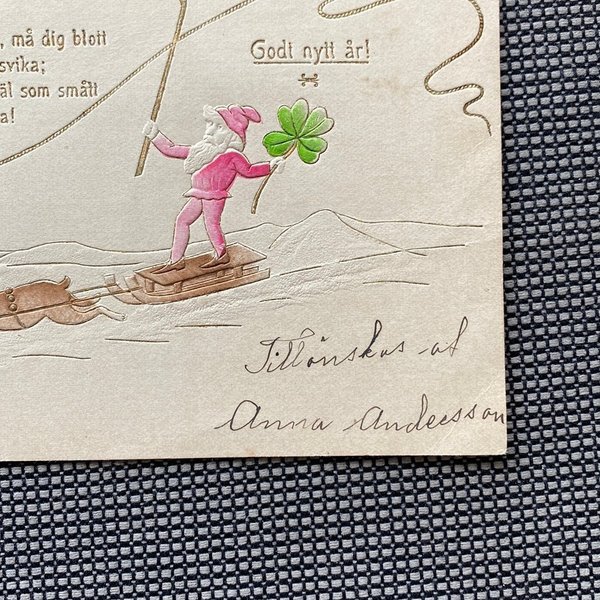 , må dig blott
svika;
äl som smått
a!
Godt nytt år!
Tillönskas af
Anna Andersson